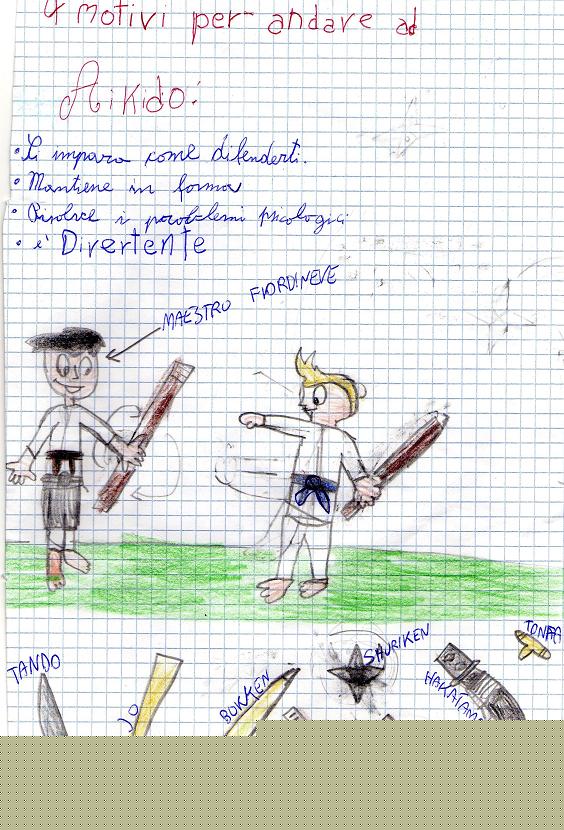 4 motivi per andare ad
Aikido:
• Ti impara come difenderti.
• Mantiene in forma
• Risolve i problemi psicologici
• è Divertente
MAESTRO FIORDINEVE
TANDO
JO
BOKKEN
SHURIKEN
TONFA